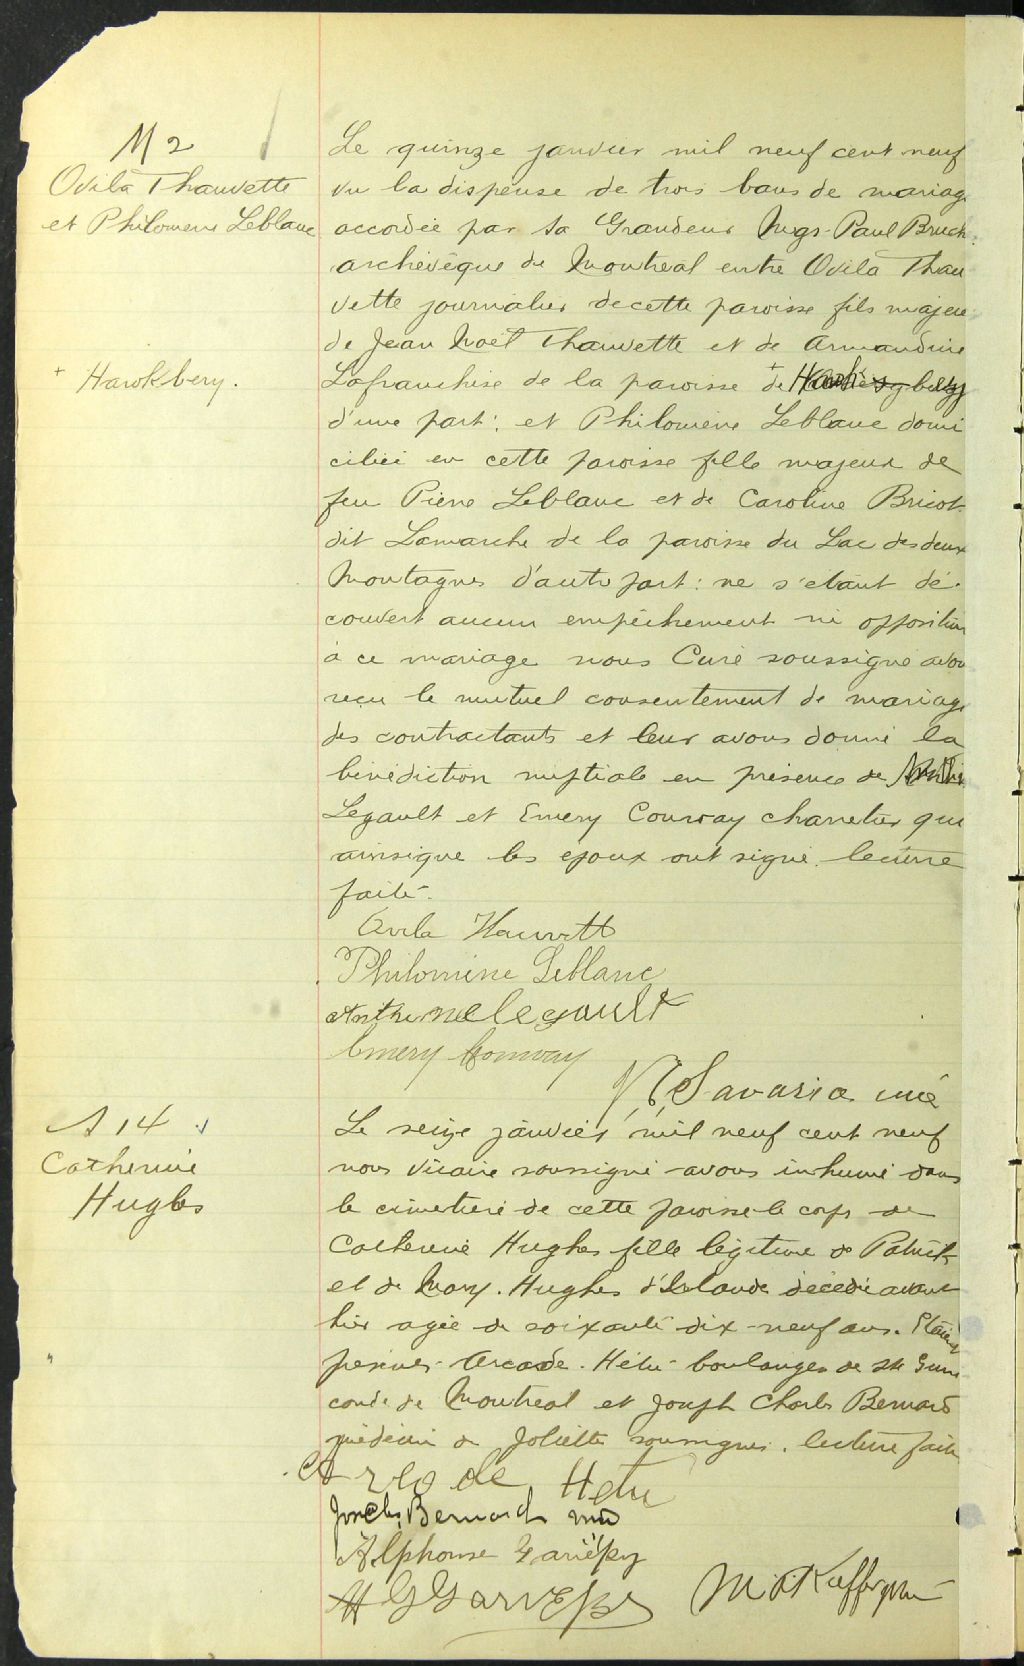 M 2
Ovila Thauvette
et Philomene Leblanc
Le quinze janvier mil neuf cent neuf
vu la dispense de trois bans de mariage
accordée par Sa Grandeur Mgr Paul Bruch.
archevêque de Montreal entre Ovila Thau
vette journalier de cette paroisse fils majeur
de Jean Noël Thauvette et de Armandine
+ Hawkbery.
Lafranchise de la paroisse + de
d'une part: et Philomène Leblanc domi
ciliée en cette paroisse fille majeure de
feu Pierre Leblanc et de Caroline Bricot
dit Lamarche de la paroisse du Lac des deux
Montagnes d'autre part: ne s'étant dé-
couvert aucun empêchement ni opposition
à ce mariage nous Curé soussigné avons
reçu le mutuel consentement de mariage
des contractants et leur avons donné la
bénédiction nuptiale en présence de
Legault et Emery Conway charretier qui
ainsique les epoux ont signé. lecture
faite.
Ovila Hauvett
Philomine Leblanc
Anthime legault
Emery Conway
Savaria curé
S 14
Catherine
Hughes
Le seize janvier mil neuf cent neuf
nous Vicaire soussigné avons inhumé dans
le cimetière de cette paroisse le corps de
Catherine Hughes fille légitime de Patrick
et de Mary Hughes d'Irlande décédée avant
hier agée de soixante dix-neuf ans. Etaient
présents Arcade Hétu boulanger de Ste Cuné
gonde de Montreal et Joseph Charles Bernard
médecin de Joliette soussignés. lecture faite
Arcade Hetu
Jos Chs Bernard md
Alphonse Gariépy
H G Gariépy